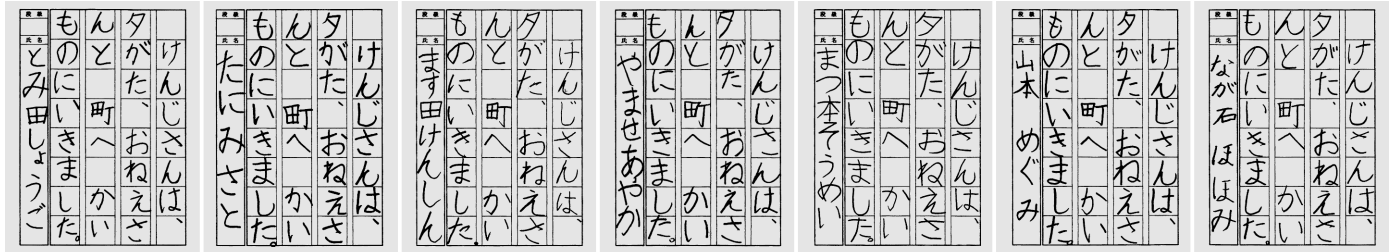 けんじさんは、
夕がた、おねえさ
んと 町へ かい
ものにいきました。
段級
氏名
とみ田しょうご
けんじさんは、
夕がた、おねえさ
んと 町へ かい
ものにいきました。
段級
氏名
たにみさと
けんじさんは、
夕がた、おねえさ
んと 町へ かい
ものにいきました。
段級
氏名
ます田けんしん
けんじさんは、
夕がた、おねえさ
んと 町へ かい
ものにいきました。
段級
氏名
やませあやか
けんじさんは、
夕がた、おねえさ
んと 町へ かい
ものにいきました。
段級
氏名
まつ本そうめい
けんじさんは、
夕がた、おねえさ
んと 町へ かい
ものにいきました。
段級
氏名
山本 めぐみ
けんじさんは、
夕がた、おねえさ
んと 町へ かい
ものにいきました。
段級
氏名
なが石 ほほみ